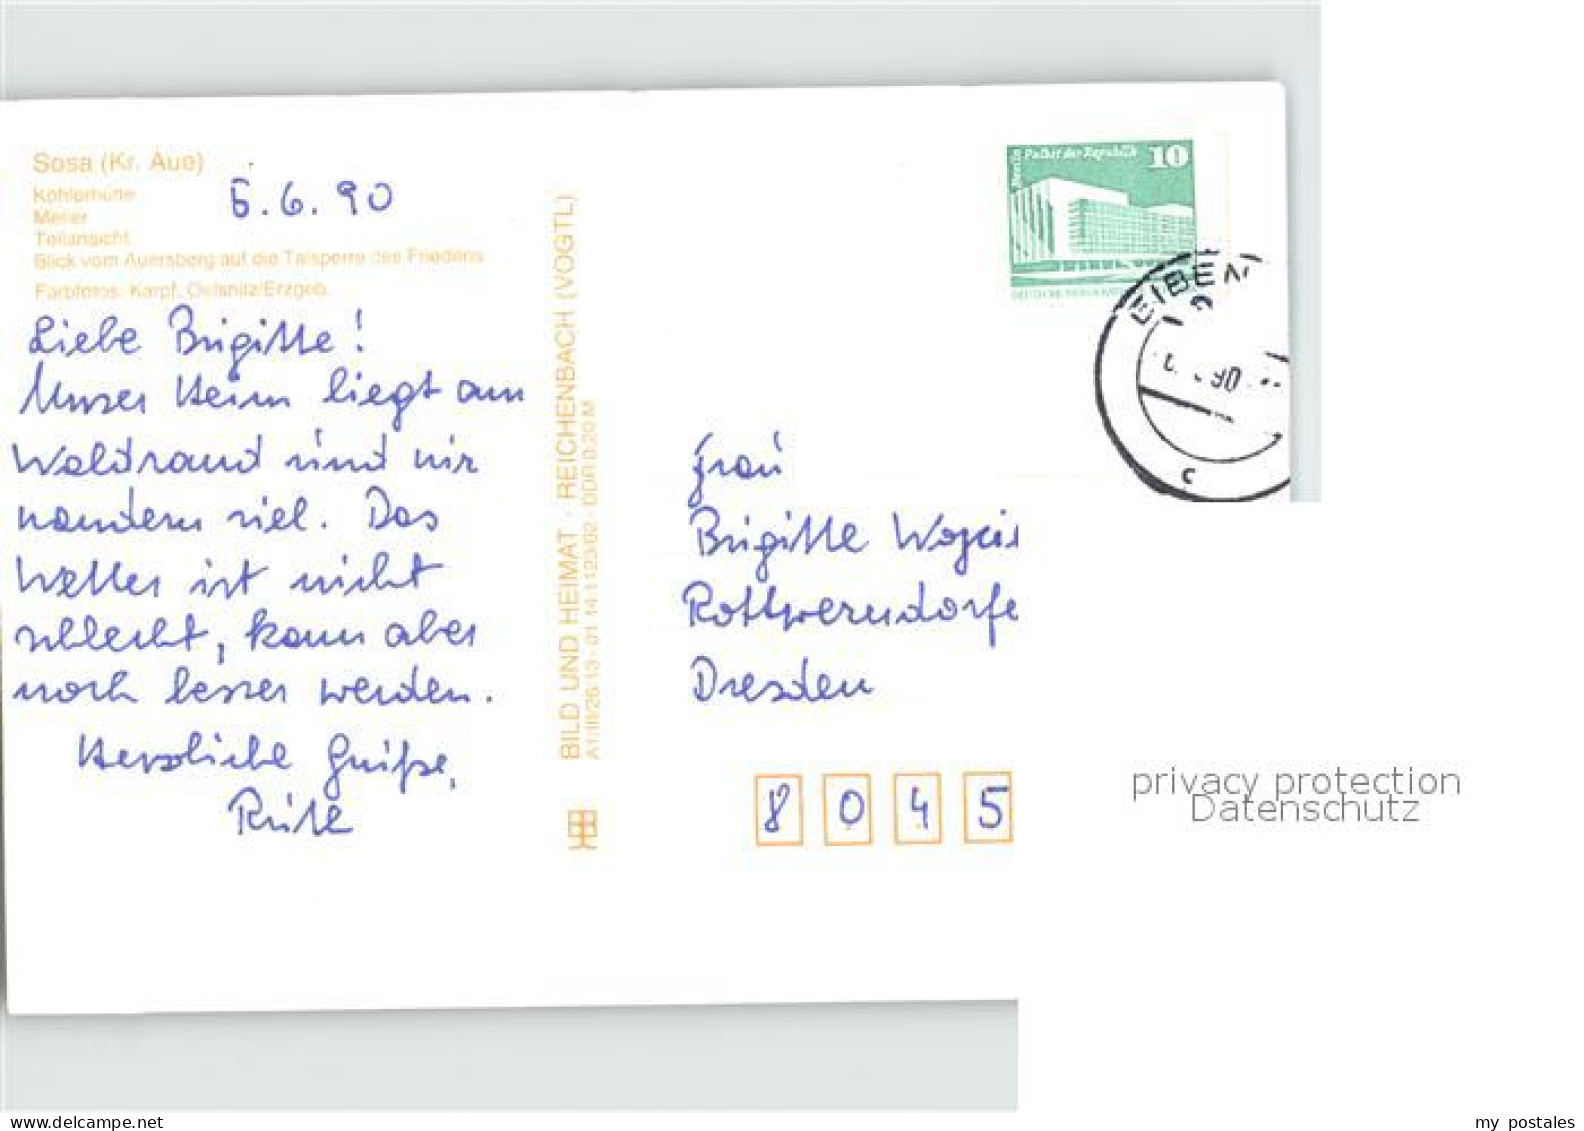 Sosa (Kr. Aue)
Köhlerhütte
Meiler
Teilansicht
Blick vom Auersberg auf die Talsperre des Friedens
Farbfotos: Karpf, Oelsnitz/Erzgeb.
5.6.90
Liebe Brigitte!
Unser Heim liegt am
Waldrand und wir
wandern viel. Das
Wetter ist nicht
schlecht, kann aber
noch besser werden.
Herzliche Grüße,
Rute
BILD UND HEIMAT · REICHENBACH (VOGTL)
A1/III/26/13 · 01 14 1123/82 · DDR 0,20 M
Berlin Palast der Republik 10
EIBEN
90
c
Frau
Brigitte
Rottwerndorfe
Dresden
8045
privacy protection
Datenschutz
my postales